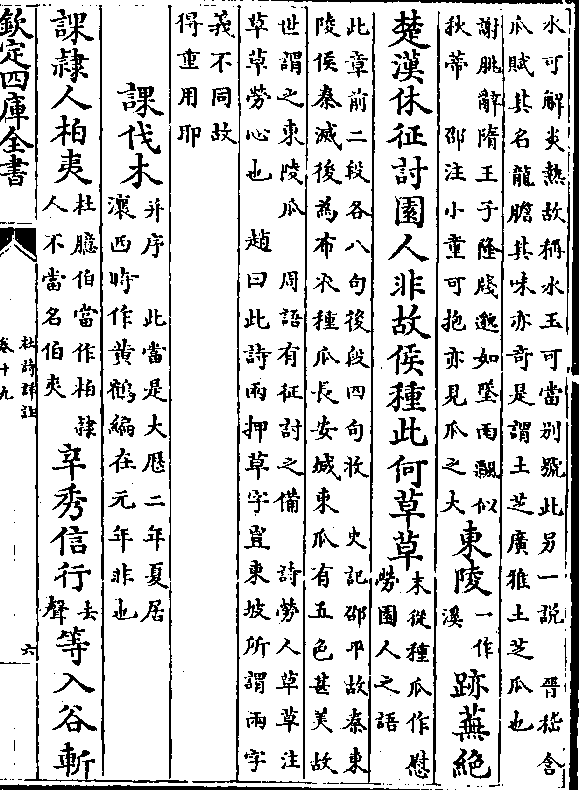 水可解炎熱故稱水玉可當别號此另一説　晉嵇含
瓜賦其名龍膽其味亦奇是謂土芝廣雅土芝瓜也
謝朓辭隋王子隆牋邈如墜雨飄似
秋蒂　邵注小童可抱亦見瓜之大
東陵
一作
溪
跡蕪絶
楚漢休征討園人非故侯種此何草草
末從種瓜作慰
勞園人之語
此章前二段各八句後段四句收　史記邵平故秦東
陵侯秦滅後為布衣種瓜長安城東瓜有五色甚美故
世謂之東陵瓜　周語有征討之備　詩勞人草草注
草草勞心也　趙曰此詩兩押草字豈東坡所謂兩字
義不同故
得重用耶
課伐木
并序　此當是大厯二年夏居
瀼西時作黄鶴編在元年非也
課隷人柏夷
杜臆伯當作柏隷
人不當名伯夷
辛秀信行
去
聲
等入谷斬
欽定四庫全書
杜詩詳註
卷十九
六